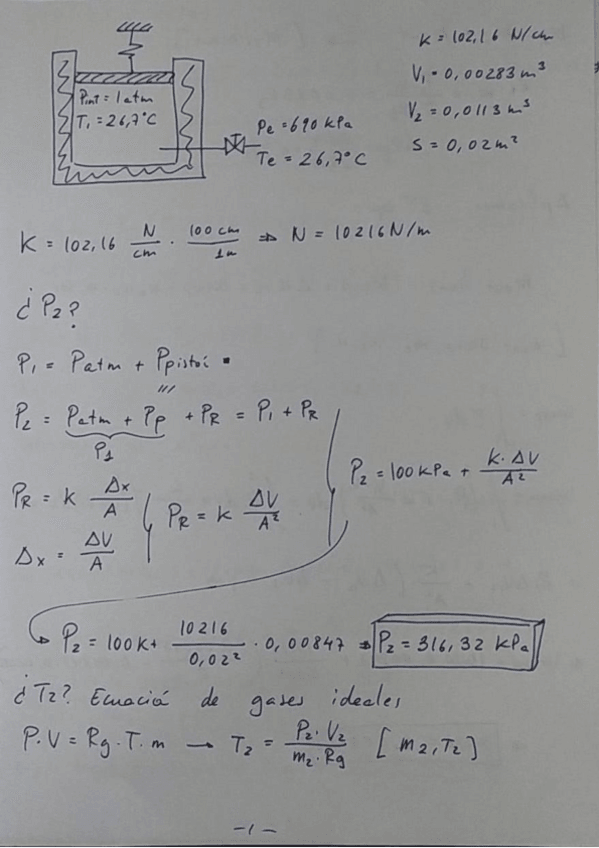 Pint = 1 atm
T₁ = 26,7°C
Pe = 690 kPa
Te = 26,7°C
K = 102,16 N/cm
V₁ = 0,00283 m³
V₂ = 0,0113 m³
S = 0,02 m²
K = 102,16 N/cm · 100 cm/1m ⇒ N = 10216 N/m
¿P₂?
P₁ = Patm + Ppistoi
P₂ = Patm + Pp + PR = P₁ + PR
P1
PR = k Δx/A
Δx = ΔV/A
PR = k ΔV/A²
P₂ = 100 kPa + k·ΔV/A²
P₂ = 100K + 10216/0,02² · 0,00847 ⇒ P₂ = 316,32 kPa
¿T₂? Ecuació de gases ideales
P·V = Rg·T·m → T₂ = P₂·V₂/m₂·Rg [m₂,T₂]
-1-